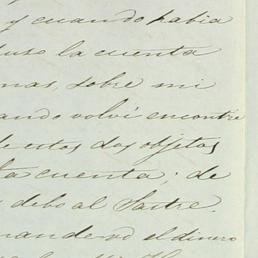 y cuando habia
puso la cuenta
mas, sobre mi
ando volví encontré
de estos dos objetos
ta cuenta; de
debo al Sastre.
mandeo el dinero